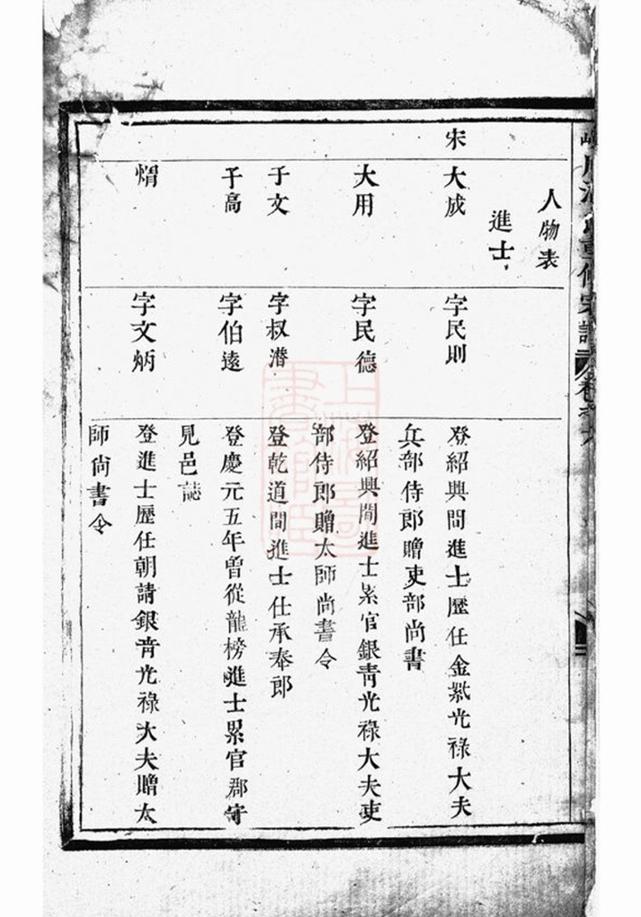 人物表
進士
宋
大成
字民則
登紹興間進士歷任金紫光祿大夫
兵部侍郎贈吏部尚書
大用
字民德
登紹興間進士累官銀青光祿大夫吏
部侍郎贈太師尚書令
于文
字叔潛
登乾道間進士仕承奉郎
于高
字伯遠
登慶元五年曾從龍榜進士累官郡守
見邑誌
熠
字文炳
登進士歷任朝請銀青光祿大夫贈太
師尚書令